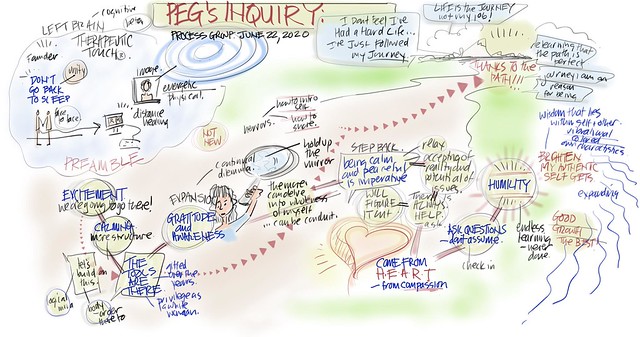 PEG'S INQUIRY:
PROCESS GROUP. JUNE 22, 2020
cognitive
LEFT BRAIN
THERAPEUTIC
TOUCH
Founder
unity
DON'T
GO BACK
TO SLEEP
face
to face
image
energetic
physical.
distance
healing
PREAMBLE
NOT
NEW
I Don't feel I've
Had a Hard Life...
I've Just followed
my Journey
LIFE is the JOURNEY
not my job!
THANKS TO the
PATH!!!
relearning that
the path is
perfect
journey I am on
reason
for being
wisdom that lies
within self + other
vibrational
characteristics
BRIGHTEN
MY AUTHENTIC
SELF GETS
expanding
GOOD
GROWL
THE BEST!
how to intro
self
how to
share
mirrors.
continual
dilemma.
hold up
the mirror
EXPANSION
GRATITUDE
and
AWARENESS
the more
I can delve
into wholeness
of myself
... can be conduit.
EXCITEMENT
we are going to go there!
CALMING
more structure
let's
build on
this!
THE
TOOLS
ARE
THERE
gifted
over the
years.
privilege as
a white
woman.
body
order
have to
STEP BACK
being calm
and peaceful
is imperative
relax
accepting of
reality and
potential of
issues.
WILL
FIGURE
IT OUT
There
is
ALWAYS
HELP.
ask
HUMILITY
ASK QUESTIONS
- don't assume.
check in
endless
learning
- never
done.
COME FROM
HEART
- from compassion